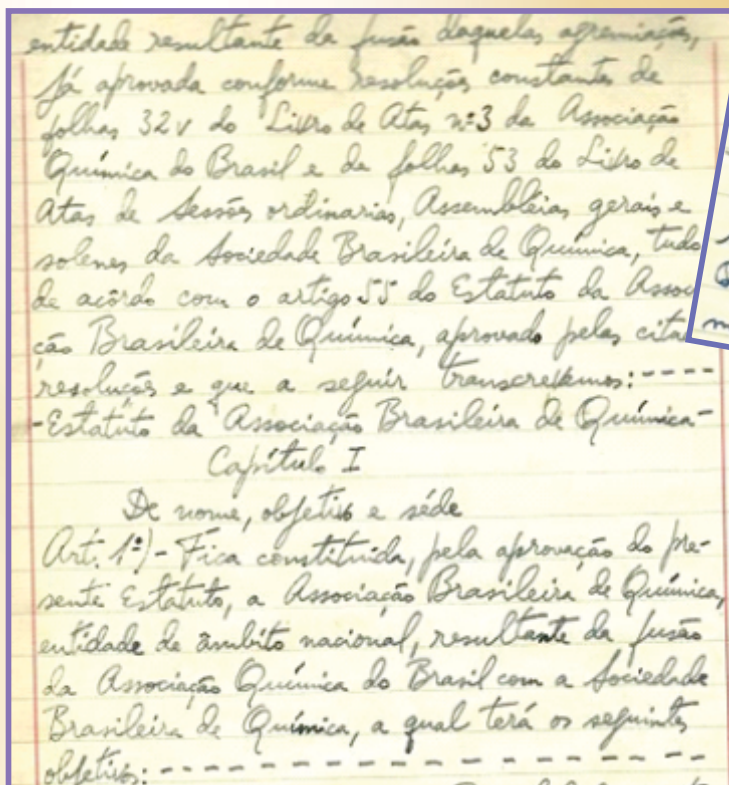 entidade resultante da fusão daquelas agremiações,
já aprovada conforme resoluções constantes de
folhas 32v do Livro de Atas nº 3 da Associação
Química do Brasil e de folhas 53 do Livro de
Atas de Sessões ordinarias, Assembléias gerais e
solenes da Sociedade Brasileira de Química, tudo
de acôrdo com o artigo 55 do Estatuto da Assoc
ção Brasileira de Química, aprovado pelas cita
resoluções e que a seguir transcrevemos:----
-Estatuto da Associação Brasileira de Química-
Capítulo I
De nome, objetivo e séde
Art. 1º)- Fica constituída, pela aprovação do pre-
sente Estatuto, a Associação Brasileira de Química,
entidade de âmbito nacional, resultante da fusão
da Associação Química do Brasil com a Sociedade
Brasileira de Química, a qual terá os seguintes
objetivos:- - - - - - - - - - - - - - - - -